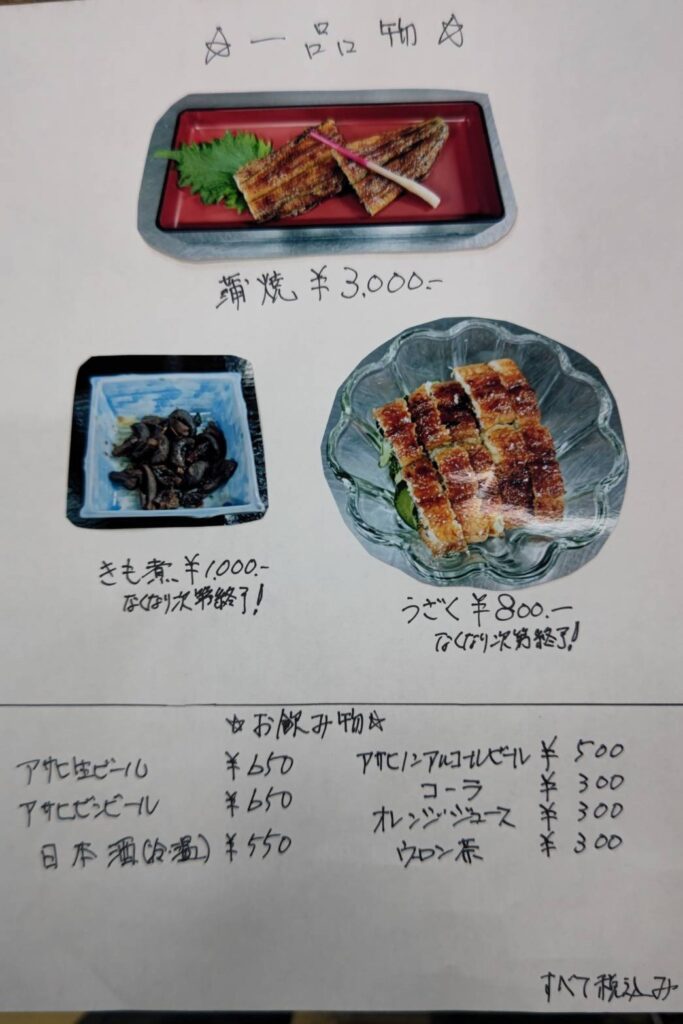 ☆一品物☆
蒲焼 ¥3,000.-
きも煮 ¥1,000.-
なくなり次第終了!
うざく ¥800.-
なくなり次第終了!
☆お飲み物☆
アサヒ生ビール ¥650
アサヒビンビール ¥650
日本酒(冷・温) ¥550
アサヒノンアルコールビール ¥500
コーラ ¥300
オレンジジュース ¥300
ウーロン茶 ¥300
すべて税込み